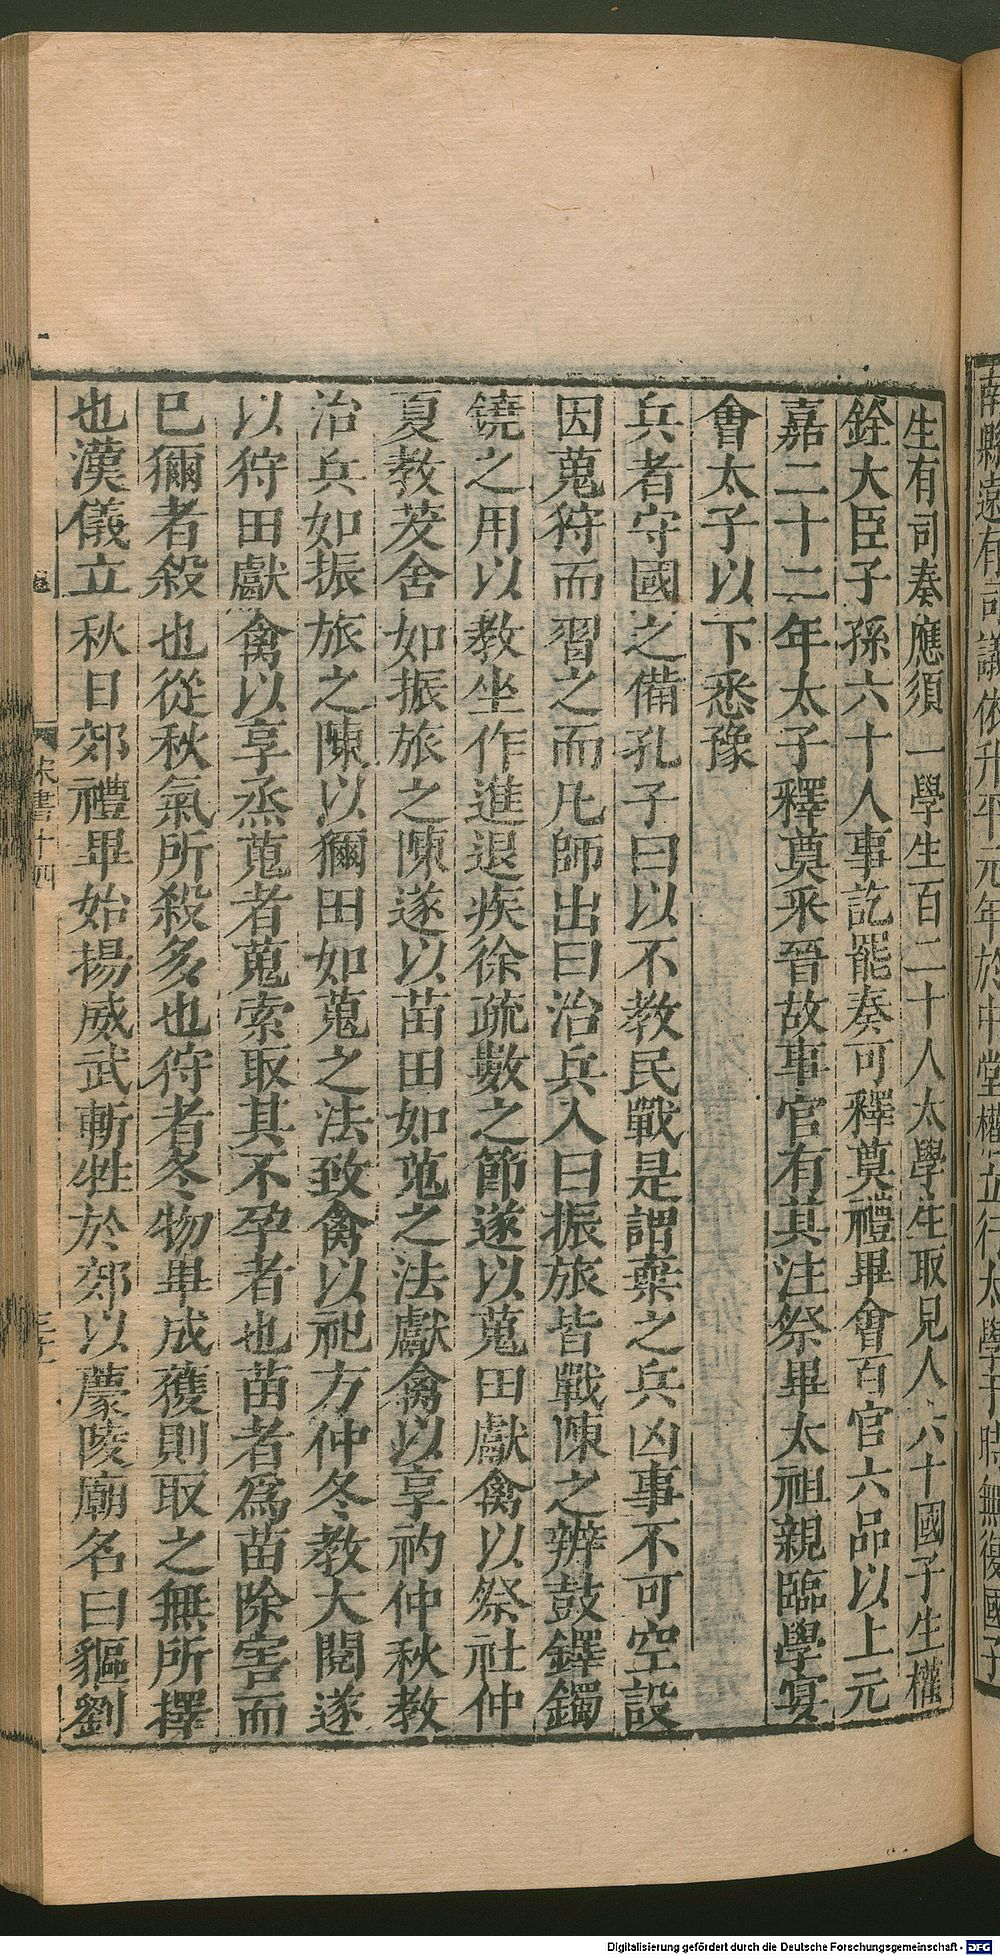 南縣遠有司議依升平元年於中堂權立行太學于時無復國子
生有司奏應須一學生百二十人太學生取見人六十國子生權
銓大臣子孫六十人事訖罷奏可釋奠禮畢會百官六品以上元
嘉二十二年太子釋奠采晉故事官有其注祭畢太祖親臨學宴
會太子以下悉豫
兵者守國之備孔子曰以不教民戰是謂棄之兵凶事不可空設
因蒐狩而習之而凡師出曰治兵入曰振旅皆戰陳之辨鼓鐸鐲
鐃之用以教坐作進退疾徐疏數之節遂以蒐田獻禽以祭社仲
夏教茇舍如振旅之陳遂以苗田如蒐之法獻禽以享礿仲秋教
治兵如振旅之陳以獮田如蒐之法致禽以祀方仲冬教大閱遂
以狩田獻禽以享烝蒐者蒐索取其不孕者也苗者爲苗除害而
巳獮者殺也從秋氣所殺多也狩者冬物畢成獲則取之無所擇
也漢儀立秋日郊禮畢始揚威武斬牲於郊以薦陵廟名曰貙劉
宋書十四
Digitalisierung gefördert durch die Deutsche Forschungsgemeinschaft - DFG